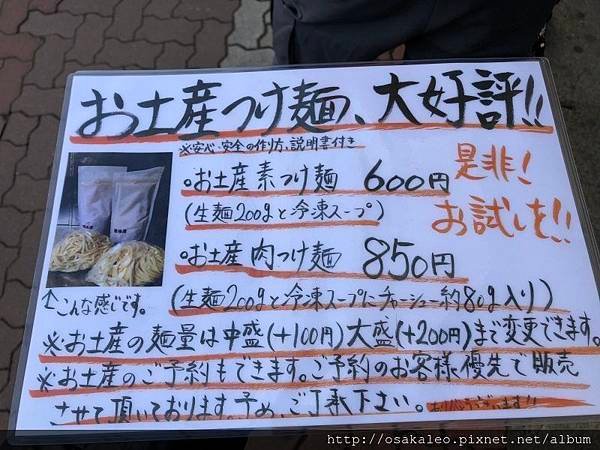 お土産つけ麺、大好評!!
※安心・安全の作り方、説明書付き
。お土産 素つけ麺 600円
(生麺200gと冷凍スープ)
是非!
お試しを!!
。お土産 肉つけ麺 850円
(生麺200gと冷凍スープにチャーシュー約80g入り)
↑こんな感じです。
※お土産の麺量は中盛(+100円)大盛(+200円)まで変更できます。
※お土産のご予約もできます。ご予約のお客様優先で販売
させて頂いております。予め、ご了承下さい。ありがとうございます!!
http://osakaleo.pixnet.net/album